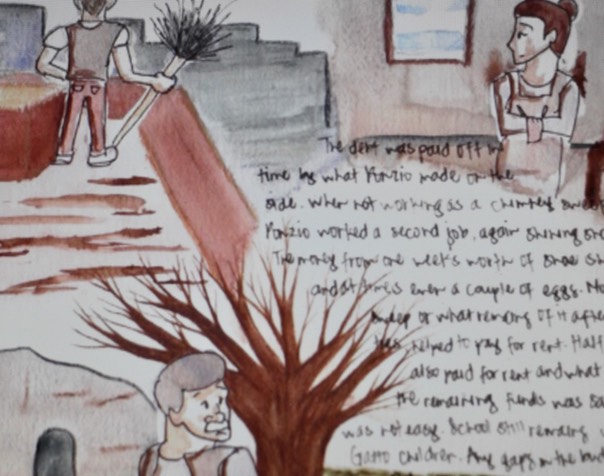 The debt was paid off in
time by what Ponzio made on the
side. When not working as a chimney
Ponzio worked a second job, again shining
The money from one week's worth of shoe
and at times even a couple of eggs.
or what remains of it
helped to pay for rent. Half
also paid for rent and what
the remaining funds was
was not easy. School still remains
Gatto children. Any gaps in the